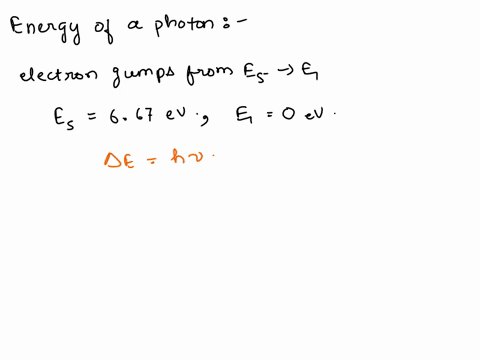 Energy of a photon:-
electron gumps from E5 → E1
E5 = 6.67 eV., E1 = 0 eV.
ΔE = hν.